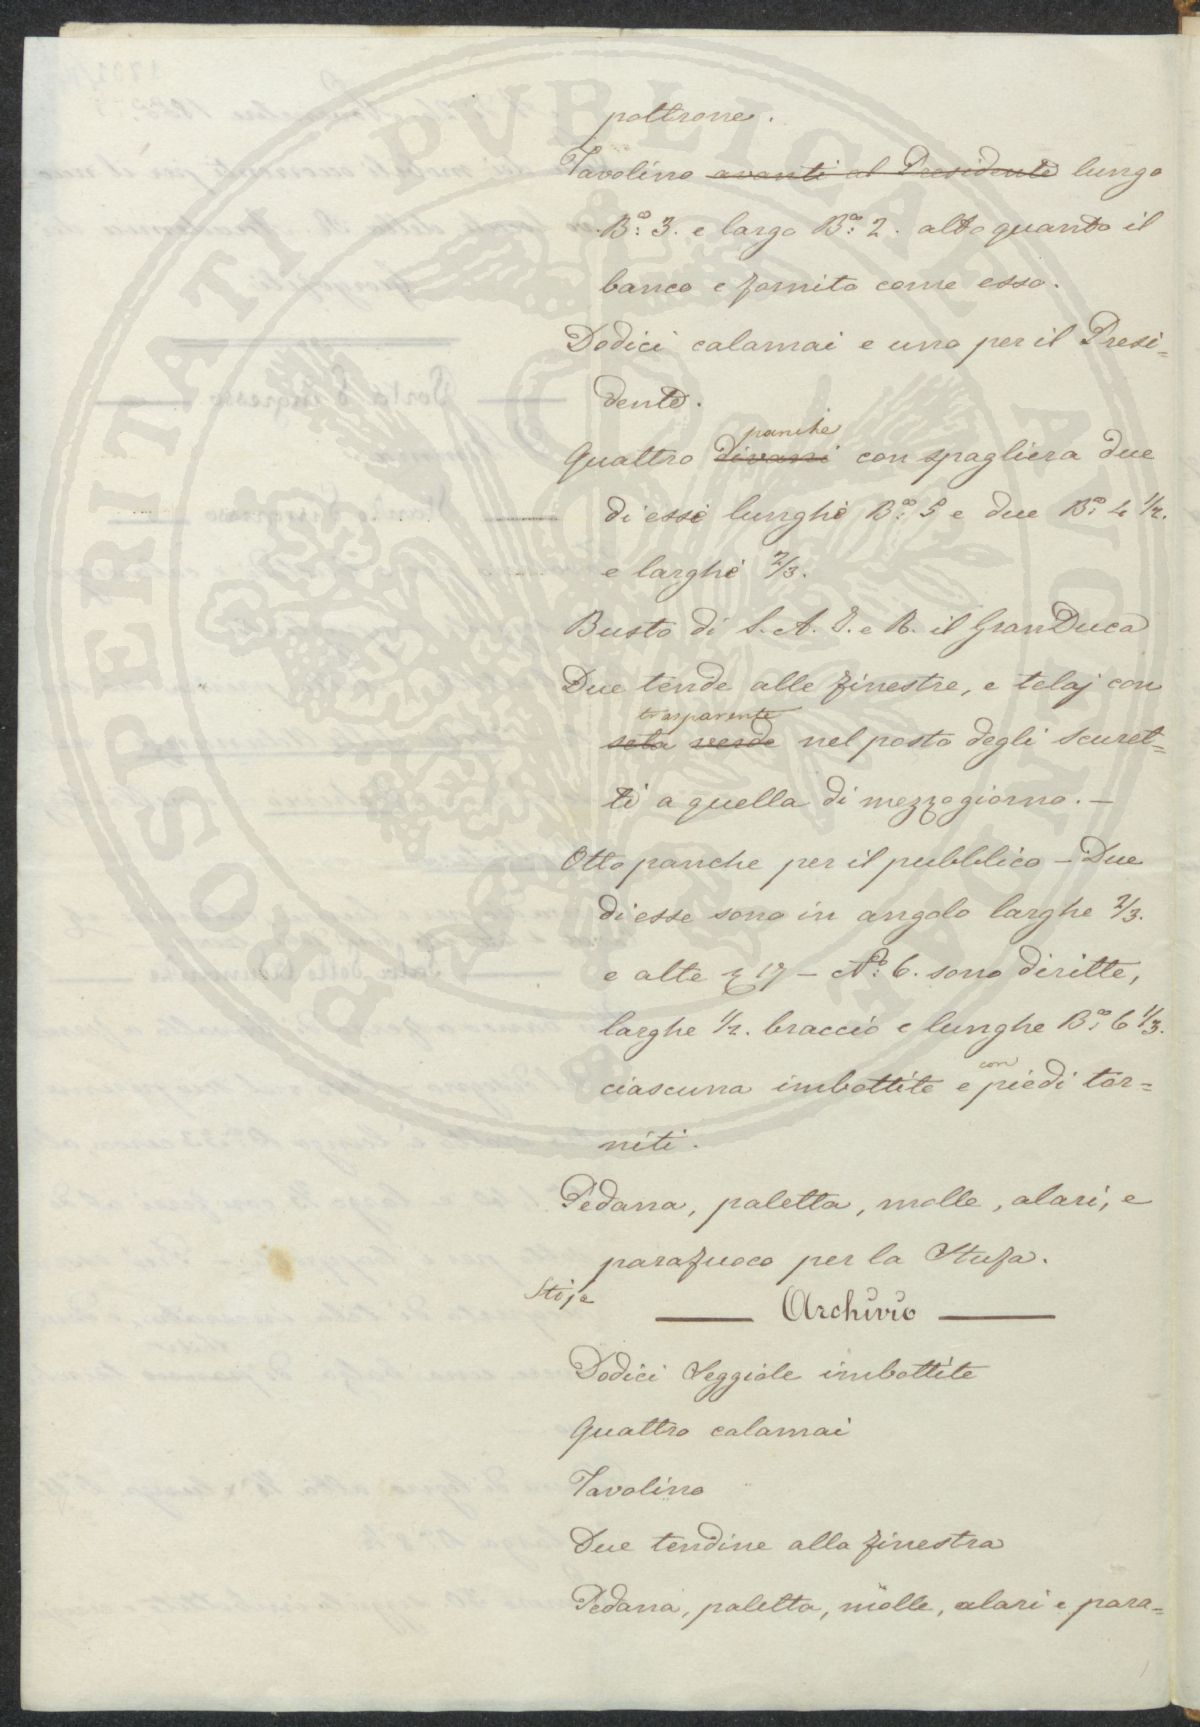 poltrone.
Tavolino avanti al Presidente lungo
B.ª 3. e largo B.ª 2. alto quanto il
banco e fornito come esso.
Dodici calamai e uno per il Presi-
dente.
panche
Quattro divani con spagliera due
di esse lunghe B.ª 5 e due B.ª 4 1/2.
e larghe 2/3.
Busto di S. A. I. e R. il GranDuca
Due tende alle finestre, e telaj con
trasparente
seta verde nel posto degli scuret=
ti a quella di mezzogiorno. —
Otto panche per il pubblico — Due
di esse sono in angolo larghe 2/3.
e alte 17 — N.º 6. sono diritte,
larghe 1/2. braccio e lunghe B.ª 6 1/3.
con
ciascuna imbottite e piedi tor=
niti.
Pedana, paletta, molle, alari, e
parafuoco per la Stufa.
Stoje
Archivio
Dodici Seggiole imbottite
Quattro calamai
Tavolino
Due tendine alla finestra
Pedana, paletta, molle, alari e para=
PROSPERITATI PVBLICAE AVGENDAE